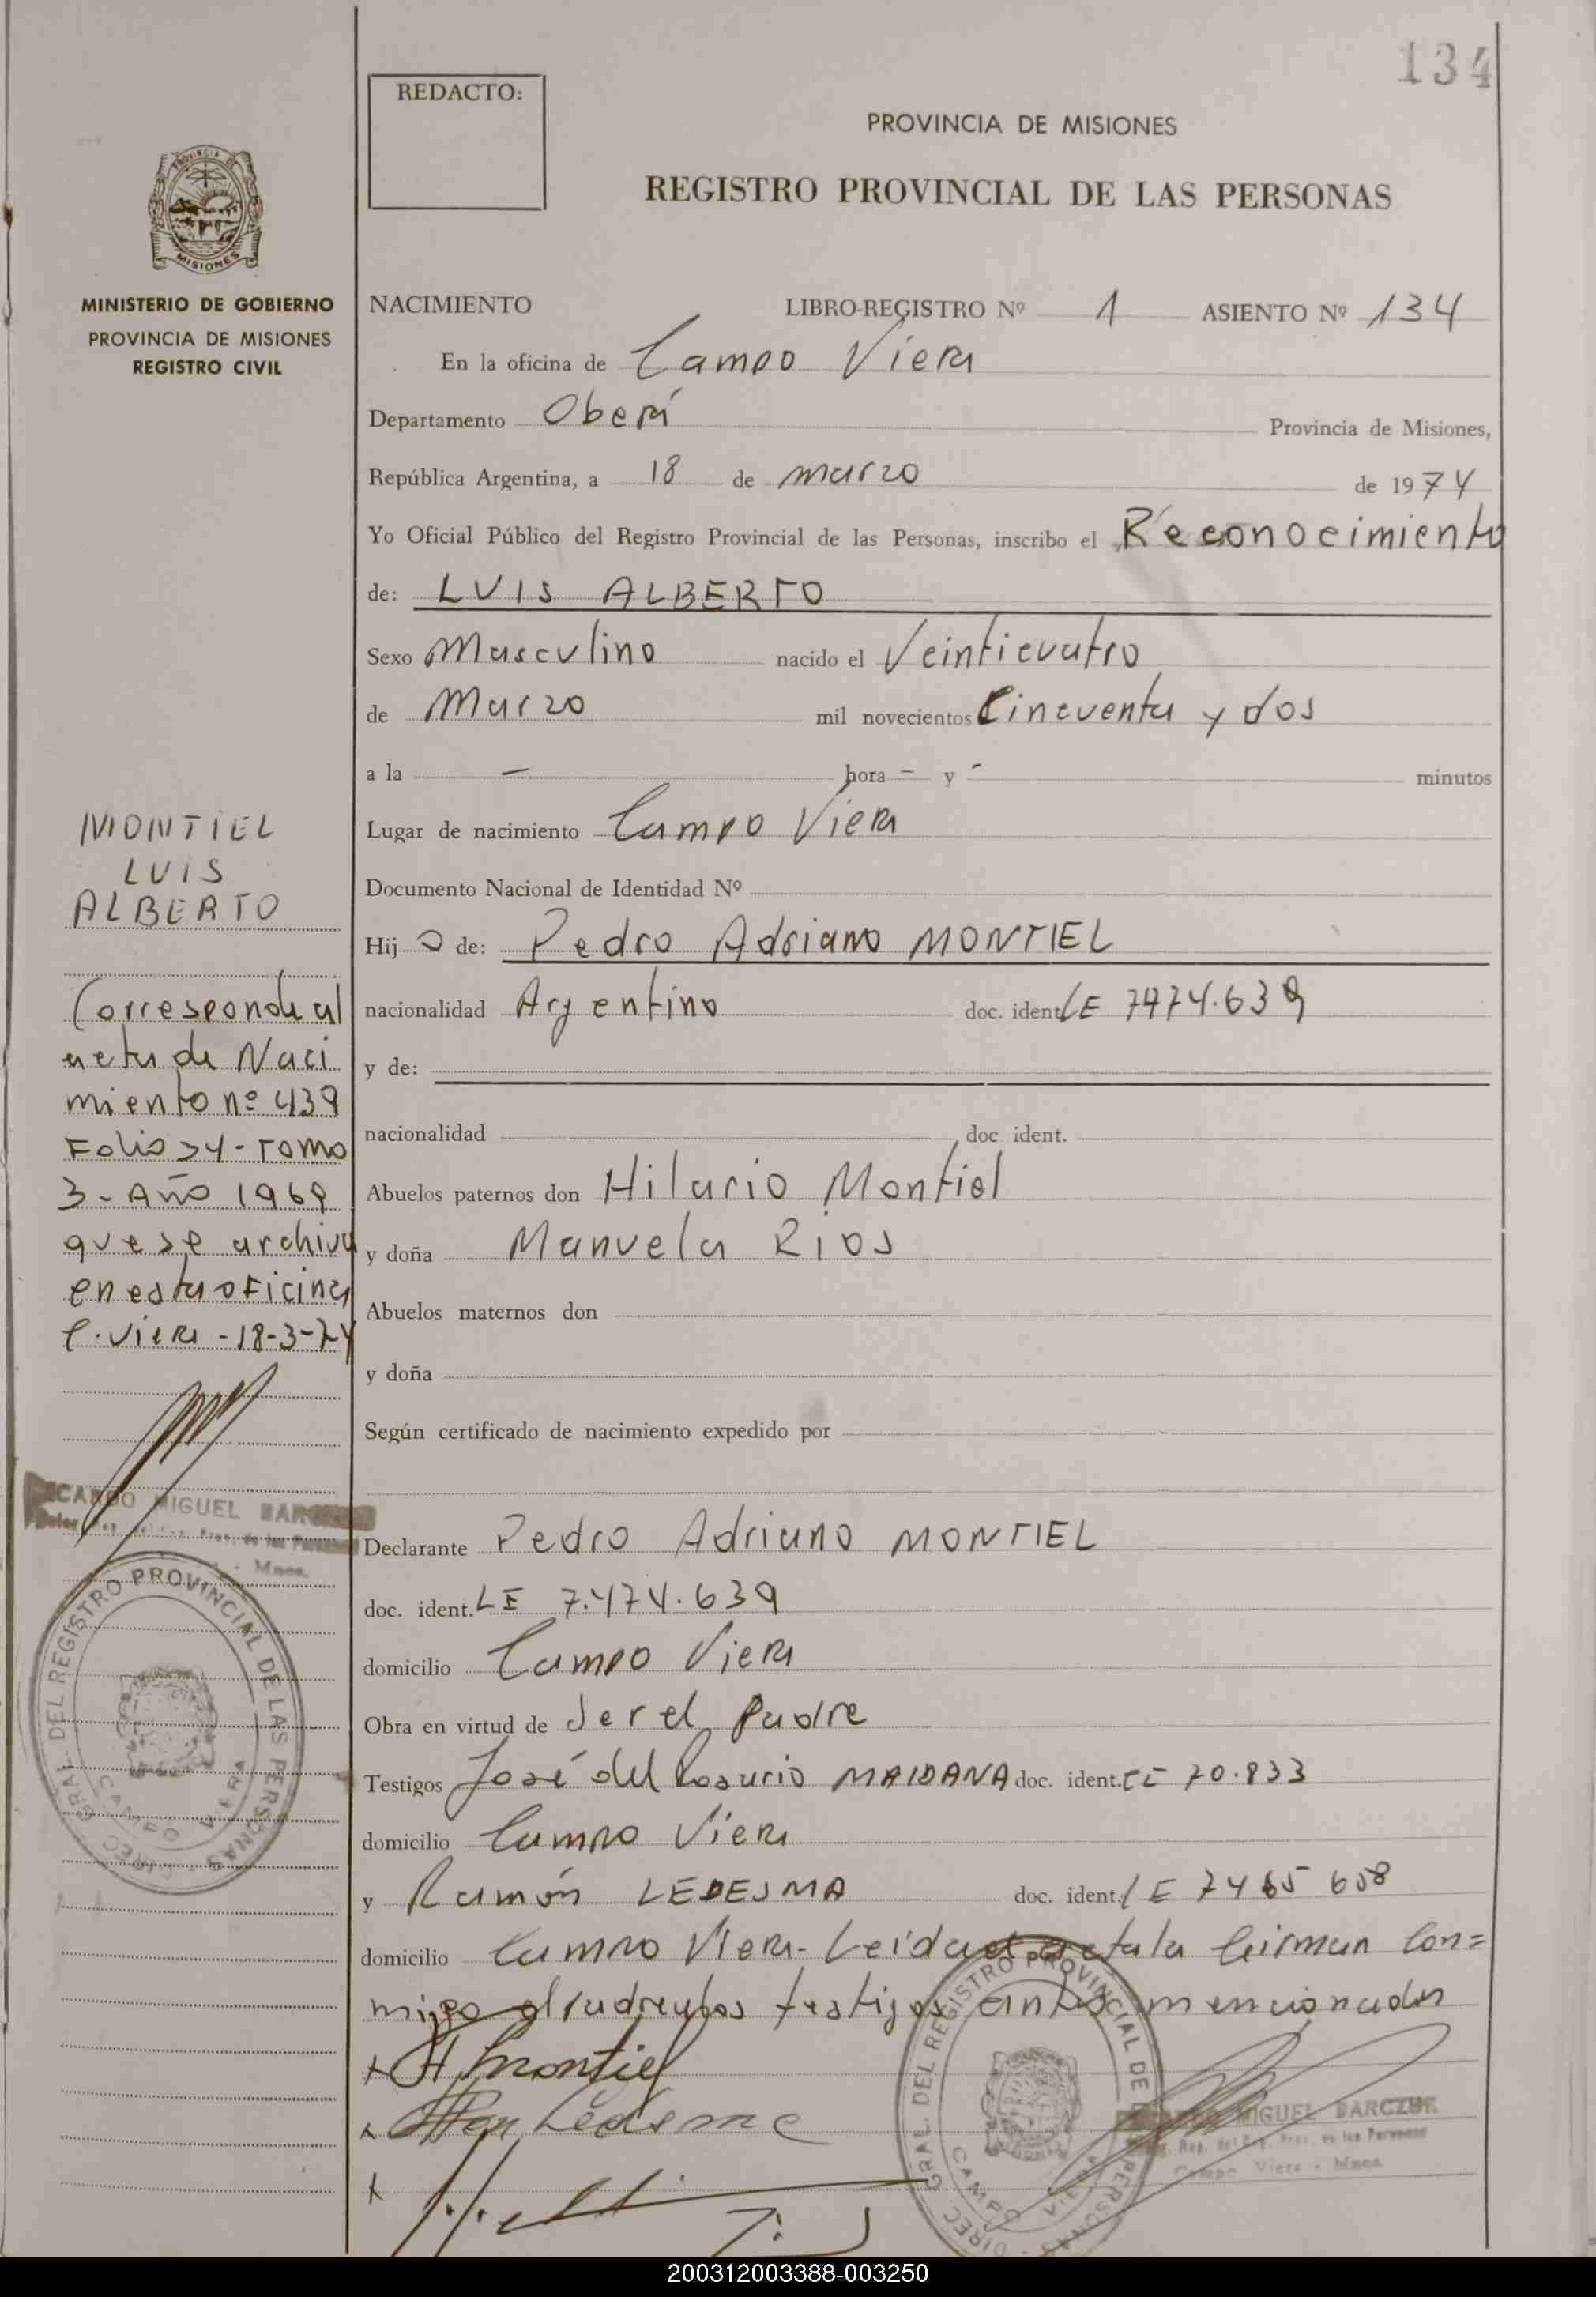 134
REDACTO:
PROVINCIA DE MISIONES
REGISTRO PROVINCIAL DE LAS PERSONAS
PROVINCIA DE
MISIONES
MINISTERIO DE GOBIERNO
PROVINCIA DE MISIONES
REGISTRO CIVIL
NACIMIENTO LIBRO-REGISTRO Nº 1 ASIENTO Nº 134
En la oficina de Campo Viera
Departamento Oberá Provincia de Misiones,
República Argentina, a 18 de marzo de 1974
Yo Oficial Público del Registro Provincial de las Personas, inscribo el Reconocimiento
de: LUIS ALBERTO
Sexo Masculino nacido el Veinticuatro
de Marzo mil novecientos Cincuenta y dos
a la — hora - y - minutos
Lugar de nacimiento Campo Viera
Documento Nacional de Identidad Nº
Hij o de: Pedro Adriano MONTIEL
nacionalidad Argentino doc. ident. LE 7474.639
y de:
nacionalidad doc ident.
Abuelos paternos don Hilario Montiel
y doña Manuela Rios
Abuelos maternos don
y doña
Según certificado de nacimiento expedido por
Declarante Pedro Adriano MONTIEL
doc. ident. LE 7.474.639
domicilio Campo Viera
Obra en virtud de Ser el Padre
Testigos José del Rosario MAIDANA doc. ident. CI 70.833
domicilio Campo Viera
y Ramón LEDESMA doc. ident. LE 7465 658
domicilio Campo Viera- Leida el acta la firman con=
migo el padre y los testigos antes mencionados
x A Montiel
x Ledesma
x
MONTIEL
LUIS
ALBERTO
Corresponde al
acta de Naci
miento nº 439
Folio 74 - Tomo
3 - Año 1969
que se archiva
en esta oficina
C. Viera - 18-3-74
MIGUEL BARCZUK
DIREC. GRAL. DEL REGISTRO PROVINCIAL DE LAS PERSONAS
CAMPO VIERA
DIREC. GRAL. DEL REGISTRO PROVINCIAL DE LAS PERSONAS
CAMPO VIERA
MIGUEL BARCZUK
Campo Viera - Mnes.
200312003388-003250